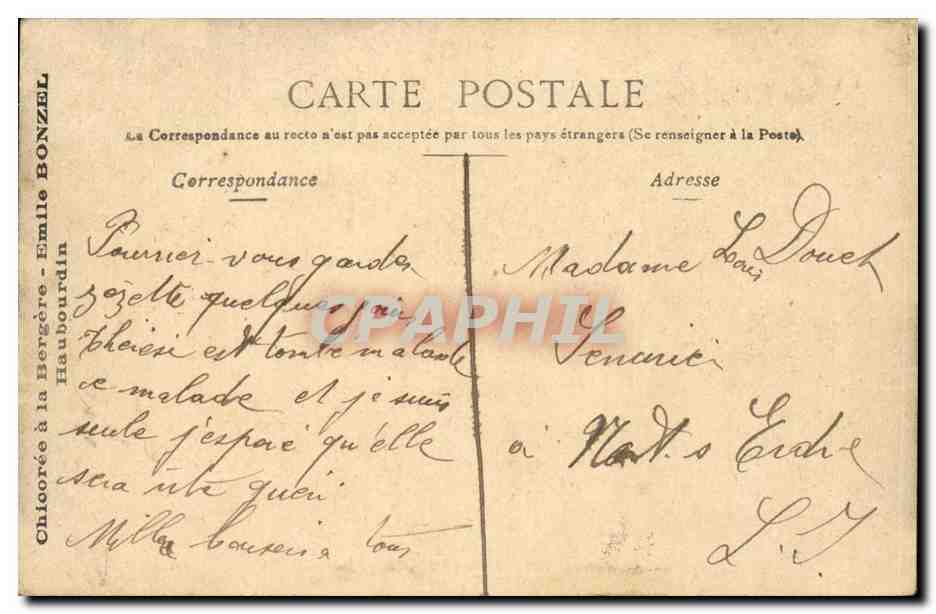 CARTE POSTALE
La Correspondance au recto n'est pas acceptée par tous les pays étrangers (Se renseigner à la Poste).
Correspondance
Pourriez-vous garder
zézette quelques
Thérèse est tombé malade
malade et je suis
seule j'espère qu'elle
sera vite guéri
Mille baisers a tous
Adresse
Madame Louis Douet
à Nort. s Erdre
L. I
Chicorée à la Bergère - Emile BONZEL
Haubourdin
CPAPHIL